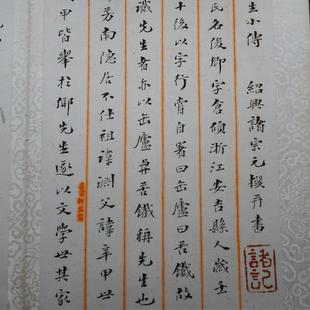 生小傳 紹興諸宗元撰并書
氏名俊卿字倉碩浙江安吉縣人歲壬
十後以字行嘗自署曰缶廬曰苦鐵故
識先生者亦以缶廬與苦鐵稱先生也
芳南隱居不仕祖諱淵父諱辛甲世
甲皆舉於鄉先生遂以文學世其家
諸記